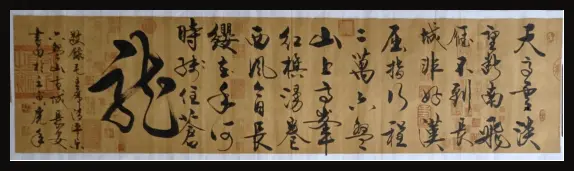 天高雲淡
望斷南飛
雁不到長
城非好漢
屈指行程
二萬六盤
山上高峰
紅旗漫卷
西風今日長
纓在手何
時縛住蒼
龍
敬錄毛主席清平乐
六盤山